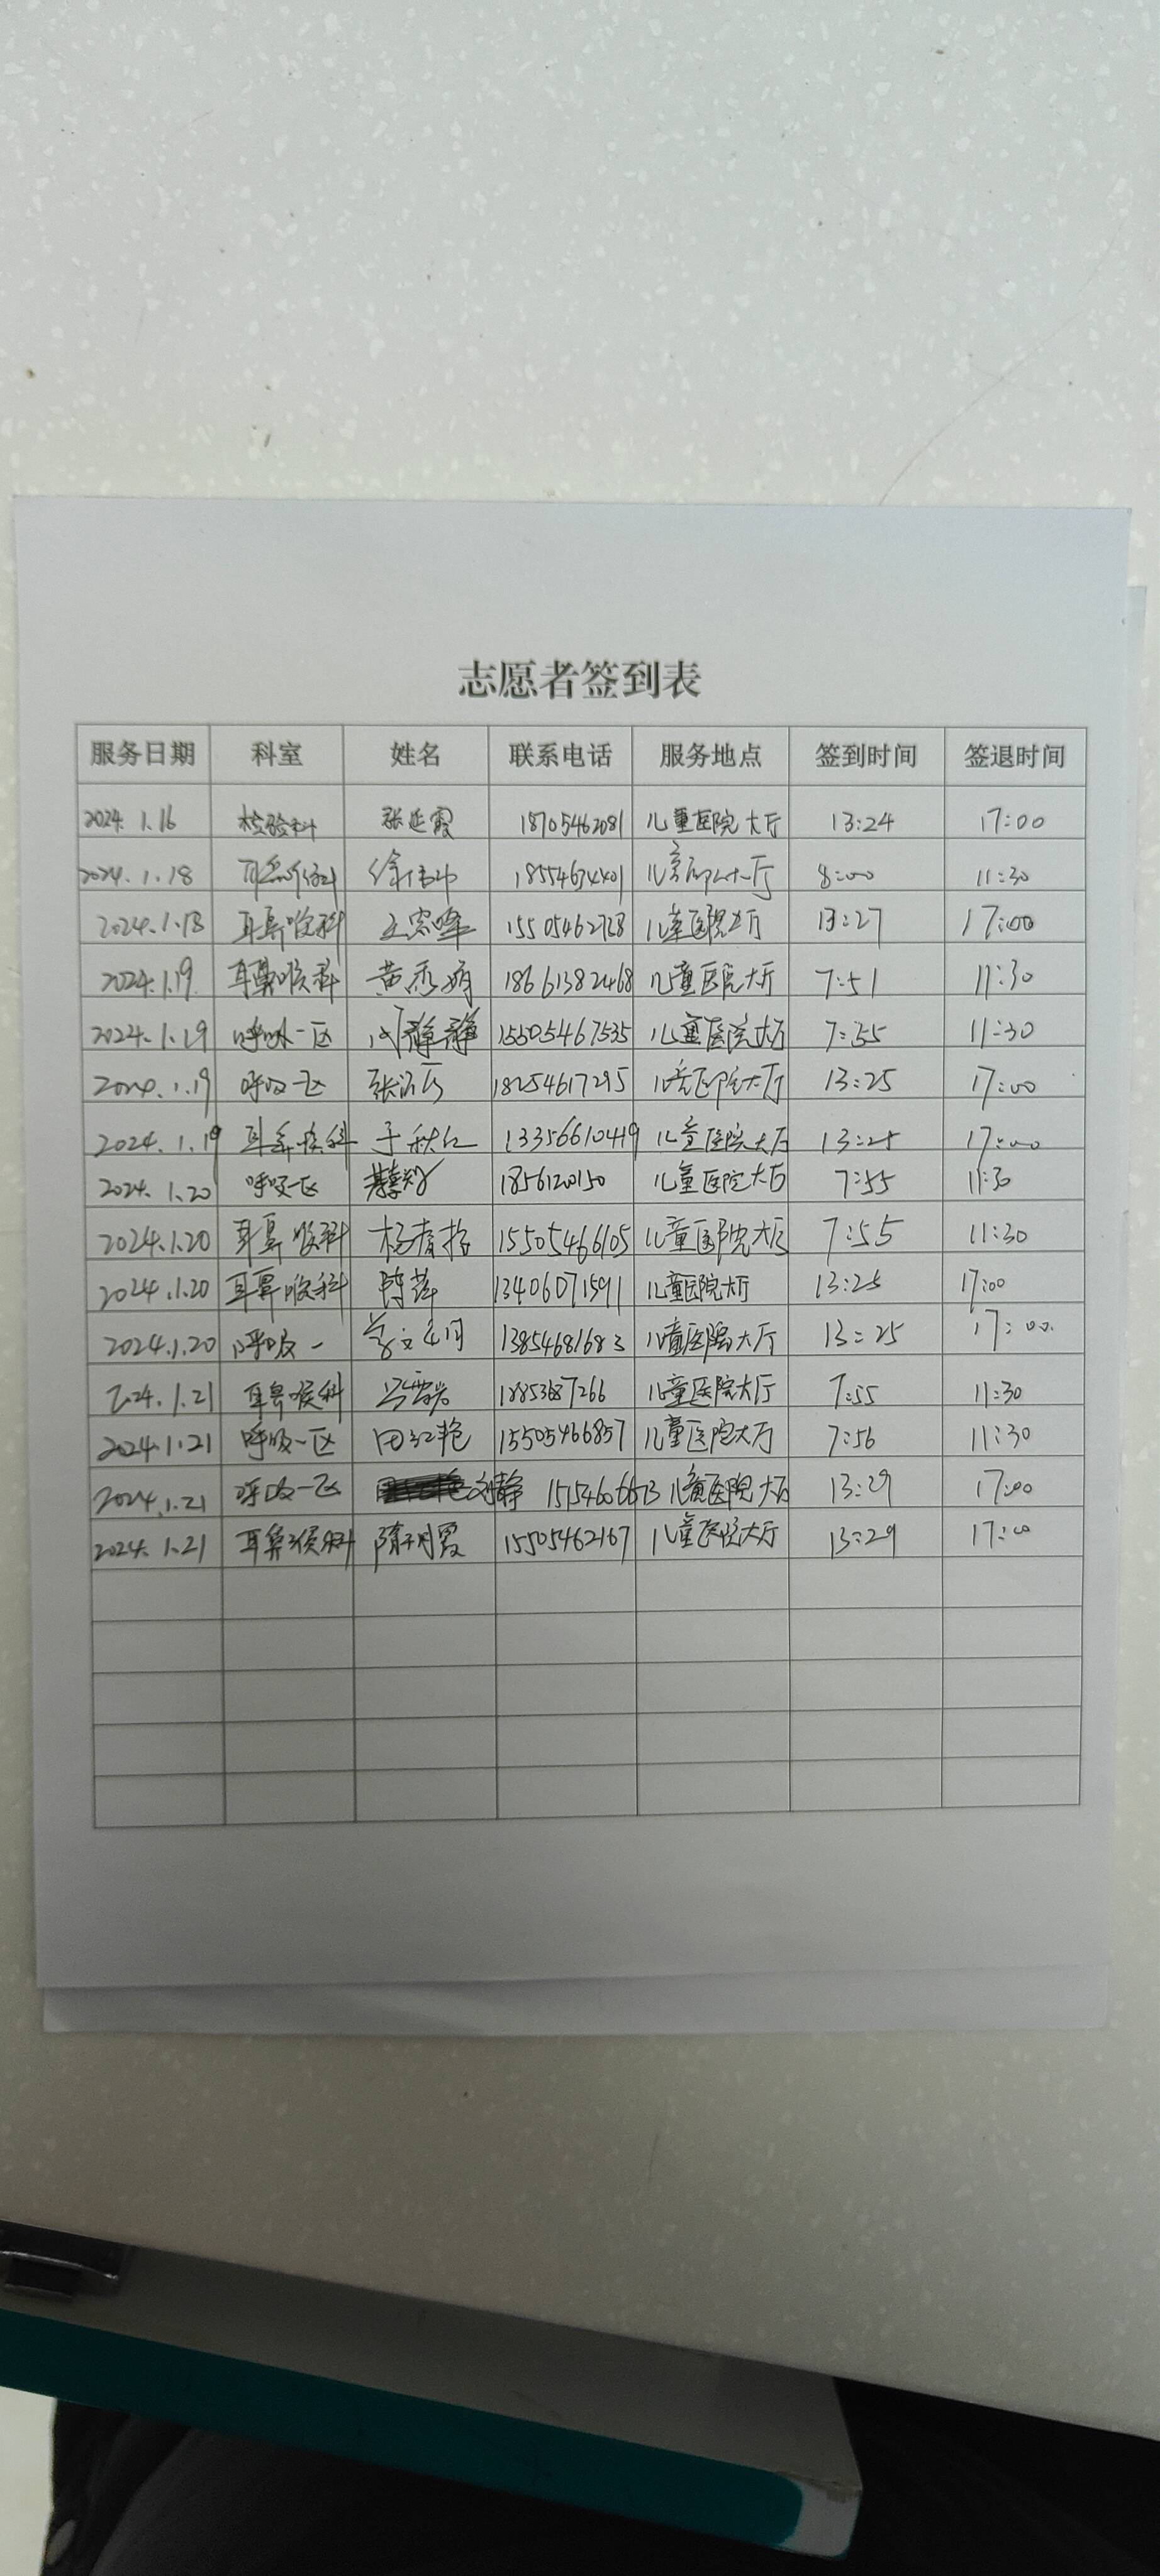 志愿者签到表
服务日期 科室 姓名 联系电话 服务地点 签到时间 签退时间
2024.1.16 检验科 张延霞 18705462081 儿童医院大厅 13:24 17:00
2024.1.18 耳鼻喉科 18554674401 儿童医院大厅 8:00 11:30
2024.1.18 耳鼻喉科 15505462728 儿童医院大厅 13:27 17:00
2024.1.19 耳鼻喉科 黄秀娟 18661382468 儿童医院大厅 7:51 11:30
2024.1.19 呼吸一区 静静 15505467535 儿童医院大厅 7:55 11:30
2024.1.19 呼吸一区 18254617295 儿童医院大厅 13:25 17:00
2024.1.19 耳鼻喉科 于秋红 13356610419 儿童医院大厅 13:25 17:00
2024.1.20 呼吸一区 1856120150 儿童医院大厅 7:55 11:30
2024.1.20 耳鼻喉科 15505466105 儿童医院大厅 7:55 11:30
2024.1.20 耳鼻喉科 陈萍 13406071591 儿童医院大厅 13:25 17:00
2024.1.20 呼吸一 13854681683 儿童医院大厅 13:25 17:00
2024.1.21 耳鼻喉科 儿童医院大厅 7:55 11:30
2024.1.21 呼吸一区 田红艳 15505466857 儿童医院大厅 7:56 11:30
2024.1.21 呼吸一区 刘静 儿童医院大厅 13:29 17:00
2024.1.21 耳鼻喉科 隋明霞 15505462167 儿童医院大厅 13:29 17:00